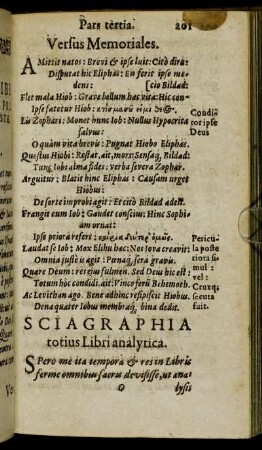 Pars tertia. 201
Versus Memoriales.
AMittit natos: Brevi & ipse luit: Citò dira:
Disputat hic Eliphas: En ferit ipse me-
dens: [scio Bildad:
Flet mala Hiob: Grave bellum hac vita: Hic con-
Ipse fatetur Hiob:
Eis Zophari: Monet hunc Iob: Nullus Hypocrita
salvus:
O quàm vita brevis: Pugnat Hiobo Eliphas.
Questus Hiobi: Restat, ait, mors: Sensaq, Bildad:
Tunc Iobi alma fides: verba severa Zophar.
Arguitur: Blatit hinc Eliphas: Causam urget
Hiobus:
De sorte improbi agit: Et citò Bildad adest.
Frangit eum Iob: Gaudet conscius: Hinc Sophi-
am ornat:
Ipse priora refert:
Laudat se Iob: Mox Elihu hac: Nos Iova creavit:
Omnia justè is agit: Punaq, sera gravis.
Quare Deum: res ejus fulmen. Sed Deus hic est:
Totum hoc condidi, ait: Vinco ferū Behemoth.
Ac Levithan ago. Bene adhinc respiscit Hiobus.
Dena quater Iobus membraq, bina dedit.
Condi-
tor ipse
Deus
Pericu-
la poste
riora si-
mul :
vel:
Cruxq;
secuta
fait.
SCIAGRAPHIA
totius Libri analytica.
SPero me ita tempora & res in Libris
ferme omnibus sacris devisisse, ut ana-
O lysis